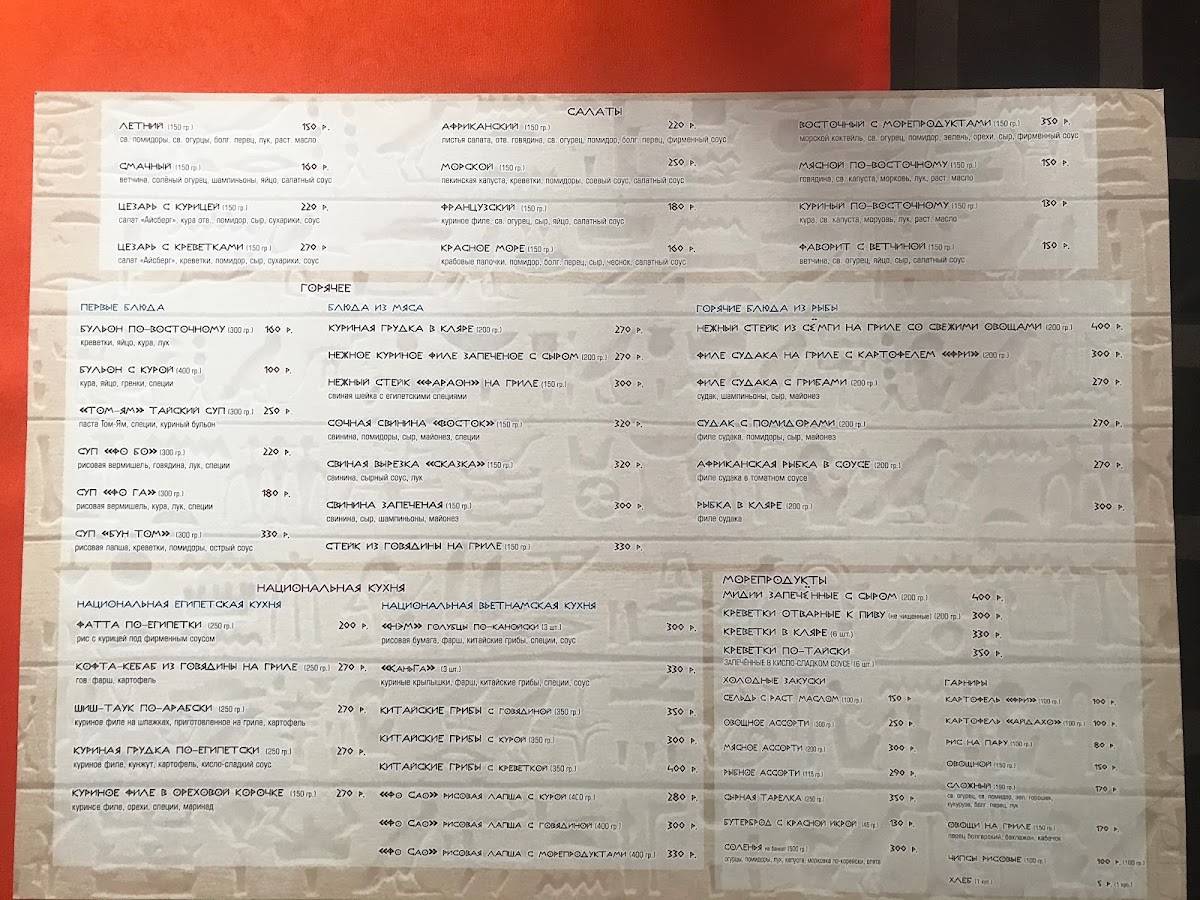 САЛАТЫ
ЛЕТНИЙ (150 гр.) 150 Р.
св. помидоры, св. огурцы, болг. перец, лук, раст. масло
СМАЧНЫЙ (150 гр.) 160 Р.
ветчина, солёный огурец, шампиньоны, яйцо, салатный соус
ЦЕЗАРЬ С КУРИЦЕЙ (150 гр.) 220 Р.
салат «Айсберг», кура отв., помидор, сыр, сухарики, соус
ЦЕЗАРЬ С КРЕВЕТКАМИ (150 гр.) 270 Р.
салат «Айсберг», креветки, помидор, сыр, сухарики, соус
АФРИКАНСКИЙ (150 гр.) 220 Р.
листья салата, отв. говядина, св. огурец, помидор, болг. перец, фирменный соус
МОРСКОЙ (150 гр.) 250 Р.
пекинская капуста, креветки, помидоры, соевый соус, салатный соус
ФРАНЦУЗСКИЙ (150 гр.) 180 Р.
куриное филе, св. огурец, сыр, яйцо, салатный соус
КРАСНОЕ МОРЕ (150 гр.) 160 Р.
крабовые палочки, помидор, болг. перец, сыр, чеснок, салатный соус
ВОСТОЧНЫЙ С МОРЕПРОДУКТАМИ (150 гр.) 350 Р.
морской коктейль, св. огурец, помидор, зелень, орехи, сыр, фирменный соус
МЯСНОЙ ПО-ВОСТОЧНОМУ (150 гр.) 150 Р.
говядина, св. капуста, морковь, лук, раст. масло
КУРИНЫЙ ПО-ВОСТОЧНОМУ (150 гр.) 130 Р.
кура, св. капуста, моруовь, лук, раст. масло
ФАВОРИТ С ВЕТЧИНОЙ (150 гр.) 150 Р.
ветчина, св. огурец, яйцо, сыр, салатный соус
ГОРЯЧЕЕ
ПЕРВЫЕ БЛЮДА
БУЛЬОН ПО-ВОСТОЧНОМУ (300 гр.) 160 Р.
креветки, яйцо, кура, лук
БУЛЬОН С КУРОЙ (400 гр.) 100 Р.
кура, яйцо, гренки, специи
«ТОМ-ЯМ» ТАЙСКИЙ СУП (300 гр.) 250 Р.
паста Том-Ям, специи, куриный бульон
СУП «ФО БО» (300 гр.) 220 Р.
рисовая вермишель, говядина, лук, специи
СУП «ФО ГА» (300 гр.) 180 Р.
рисовая вермишель, кура, лук, специи
СУП «БУН ТОМ» (300 гр.) 330 Р.
рисовая лапша, креветки, помидоры, острый соус
БЛЮДА ИЗ МЯСА
КУРИНАЯ ГРУДКА В КЛЯРЕ (200 гр.) 270 Р.
НЕЖНОЕ КУРИНОЕ ФИЛЕ ЗАПЕЧЕНОЕ С СЫРОМ (200 гр.) 270 Р.
НЕЖНЫЙ СТЕЙК «ФАРАОН» НА ГРИЛЕ (150 гр.) 300 Р.
свиная шейка с египетскими специями
СОЧНАЯ СВИНИНА «ВОСТОК» (150 гр.) 320 Р.
свинина, помидоры, сыр, майонез, специи
СВИНАЯ ВЫРЕЗКА «СКАЗКА» (150 гр.) 320 Р.
свинина, сырный соус, лук
СВИНИНА ЗАПЕЧЕНАЯ (150 гр.) 300 Р.
свинина, сыр, шампиньоны, майонез
СТЕЙК ИЗ ГОВЯДИНЫ НА ГРИЛЕ (150 гр.) 330 Р.
ГОРЯЧИЕ БЛЮДА ИЗ РЫБЫ
НЕЖНЫЙ СТЕЙК ИЗ СЁМГИ НА ГРИЛЕ СО СВЕЖИМИ ОВОЩАМИ (200 гр.) 400 Р.
ФИЛЕ СУДАКА НА ГРИЛЕ С КАРТОФЕЛЕМ «ФРИ» (200 гр.) 300 Р.
ФИЛЕ СУДАКА С ГРИБАМИ (200 гр.) 270 Р.
судак, шампиньоны, сыр, майонез
СУДАК С ПОМИДОРАМИ (200 гр.) 270 Р.
филе судака, помидоры, сыр, майонез
АФРИКАНСКАЯ РЫБКА В СОУСЕ (200 гр.) 270 Р.
филе судака в томатном соусе
РЫБКА В КЛЯРЕ (200 гр.) 300 Р.
филе судака
НАЦИОНАЛЬНАЯ КУХНЯ
НАЦИОНАЛЬНАЯ ЕГИПЕТСКАЯ КУХНЯ
ФАТТА ПО-ЕГИПЕТКИ (250 гр.) 200 Р.
рис с курицей под фирменным соусом
КОФТА-КЕБАБ ИЗ ГОВЯДИНЫ НА ГРИЛЕ (250 гр.) 270 Р.
гов. фарш, картофель
ШИШ-ТАУК ПО-АРАБСКИ (250 гр.) 270 Р.
куриное филе на шпажках, приготовленное на гриле, картофель
КУРИНАЯ ГРУДКА ПО-ЕГИПЕТСКИ (250 гр.) 270 Р.
куриное филе, кунжут, картофель, кисло-сладкий соус
КУРИНОЕ ФИЛЕ В ОРЕХОВОЙ КОРОЧКЕ (150 гр.) 270 Р.
куриное филе, орехи, специи, маринад
НАЦИОНАЛЬНАЯ ВЬЕТНАМСКАЯ КУХНЯ
«НЭМ» ГОЛУБЦЫ ПО-КАНОЙСКИ (3 шт.) 300 Р.
рисовая бумага, фарш, китайские грибы, специи, соус
«КАНЬГА» (3 шт.) 330 Р.
куриные крылышки, фарш, китайские грибы, специи, соус
КИТАЙСКИЕ ГРИБЫ С ГОВЯДИНОЙ (350 гр.) 350 Р.
КИТАЙСКИЕ ГРИБЫ С КУРОЙ (350 гр.) 300 Р.
КИТАЙСКИЕ ГРИБЫ С КРЕВЕТКОЙ (350 гр.) 400 Р.
«ФО САО» РИСОВАЯ ЛАПША С КУРОЙ (400 гр.) 280 Р.
«ФО САО» РИСОВАЯ ЛАПША С ГОВЯДИНОЙ (400 гр.) 300 Р.
«ФО САО» РИСОВАЯ ЛАПША С МОРЕПРОДУКТАМИ (400 гр.) 330 Р.
МОРЕПРОДУКТЫ
МИДИИ ЗАПЕЧЁННЫЕ С СЫРОМ (200 гр.) 400 Р.
КРЕВЕТКИ ОТВАРНЫЕ К ПИВУ (не чищенные) (200 гр.) 300 Р.
КРЕВЕТКИ В КЛЯРЕ (6 шт.) 330 Р.
КРЕВЕТКИ ПО-ТАЙСКИ 350 Р.
ЗАПЕЧЁННЫЕ В КИСЛО-СЛАДКОМ СОУСЕ (6 шт.)
ХОЛОДНЫЕ ЗАКУСКИ
СЕЛЬДЬ С РАСТ. МАСЛОМ (100 гр.) 150 Р.
ОВОЩНОЕ АССОРТИ (300 гр.) 250 Р.
МЯСНОЕ АССОРТИ (200 гр.) 300 Р.
РЫБНОЕ АССОРТИ (115 гр.) 290 Р.
СЫРНАЯ ТАРЕЛКА (250 гр.) 350 Р.
БУТЕРБРОД С КРАСНОЙ ИКРОЙ (45 гр.) 130 Р.
СОЛЕНЬЯ (500 гр.) 300 Р.
огурцы, помидоры, лук, капуста, морковка по-корейски,
ГАРНИРЫ
КАРТОФЕЛЬ «ФРИ» (100 гр.) 100 Р.
КАРТОФЕЛЬ «АЙДАХО» (100 гр.) 100 Р.
РИС НА ПАРУ (100 гр.) 80 Р.
ОВОЩНОЙ (150 гр.) 150 Р.
СЛОЖНЫЙ (190 гр.) 170 Р
св. огурец, св. помидор, зел. горошек,
кукуруза, болг. перец, лук
ОВОЩИ НА ГРИЛЕ (150 гр.) 170 Р.
перец болгарский, баклажан, кабачок
ЧИПСЫ РИСОВЫЕ (100 гр.) 100 Р. (100 гр.)
ХЛЕБ (1 кус.) 5 Р. (1 кус.)